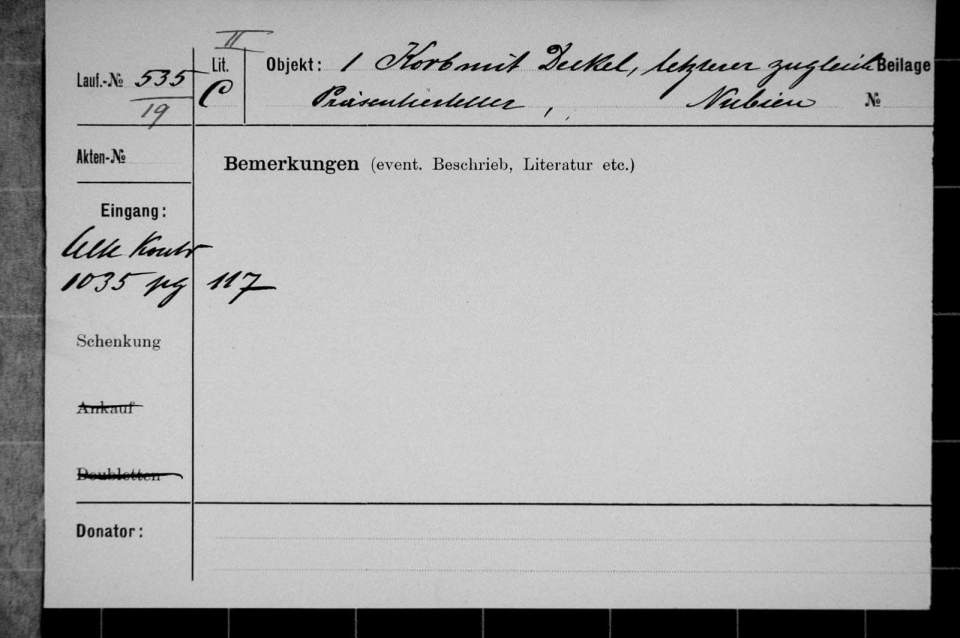 II
Lauf.-No 535
19
Lit. C
Objekt: 1 Korb mit Deckel, letzterer zugleich
Präsentierteller, Nubien
Beilage
No
Akten-No
Bemerkungen (event. Beschrieb, Literatur etc.)
Eingang:
Alte Kontr
1035 pg 117
Schenkung
Ankauf
Doubletten
Donator: